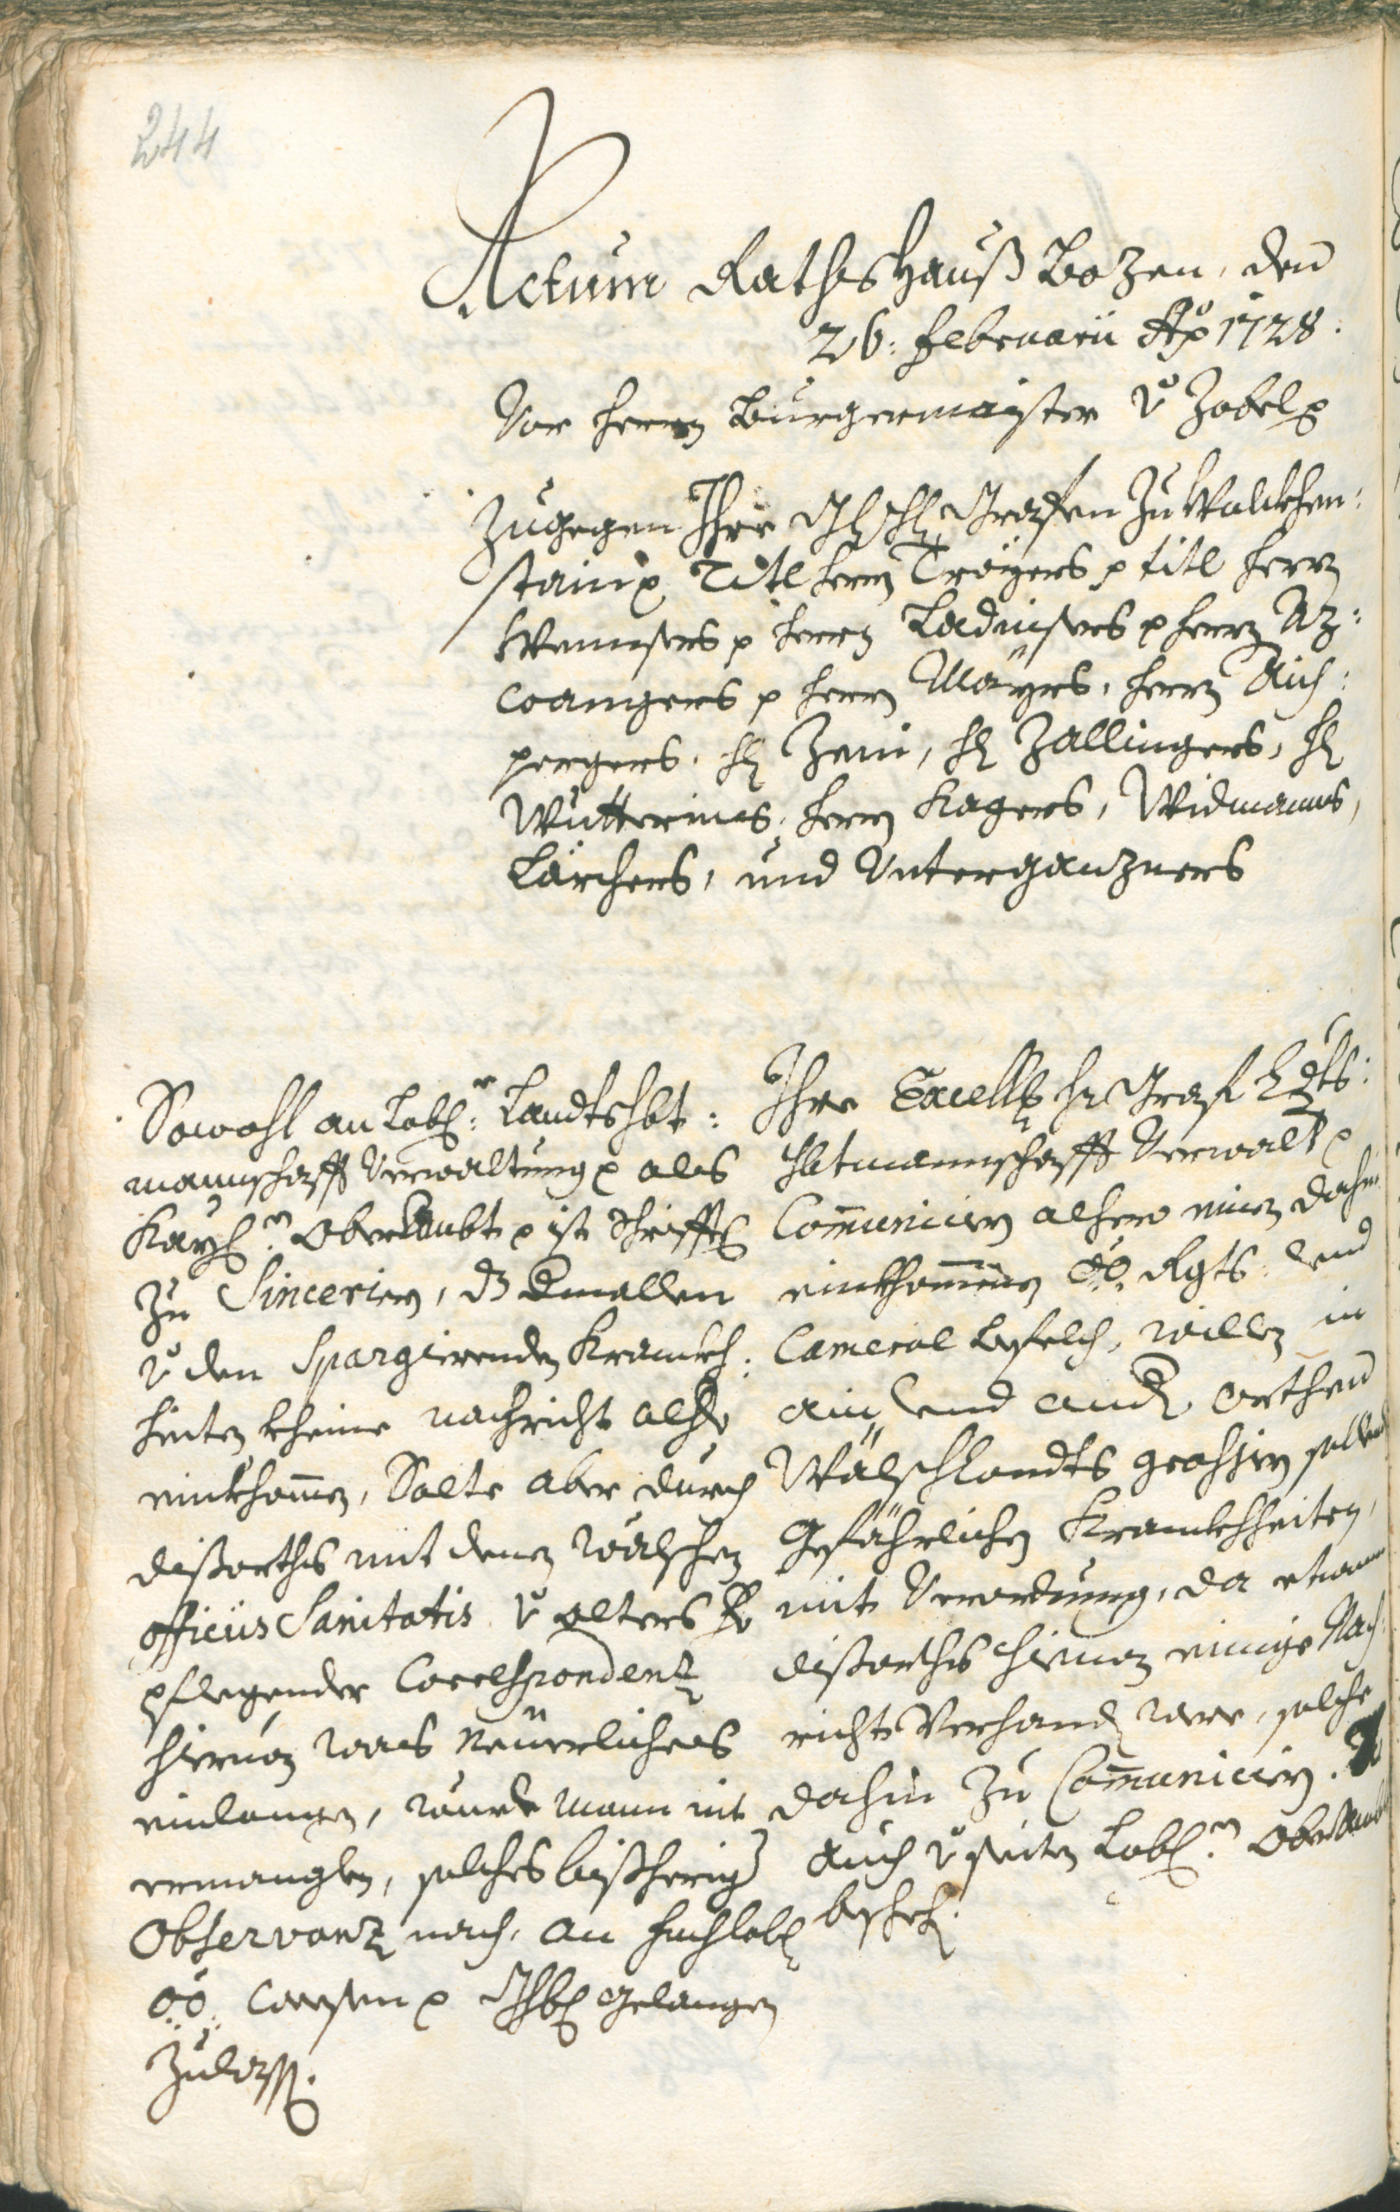 244
Actum Rathshauß Bozen, den
26: Februarii Ao 1728.
Vor herrn Burgermaister v Zobel p
Zugegen Ihro Grafen zu Wolckhen:
stain p Titl herrn Troyers p titl herrn
p herrn Ladinsers p herrn Az:
wangers p herrn Mayrs, herrn Aich:
pergers, hl Zeni, hl Zallingers, hl
Wutterines, herrn Kagers, Widmanns,
Lärchers, und Unterganzners
Ihro Excell hr Graf
hbtmannschafft Verwalt p
Communiciern alhero einen dahin
einkhommenen OÖ. Rgts: und
Cameral befelch, willen in
ain und andern orthen
Wälschlandts grassiern sollenden
Gefährlichen Krankhheiten,
mit Verordnung, da etwann
dißorths hievon einige Nach:
richt Verhanden were, solche
dahin zu Communiciern.
auch v seiten Lobl: Oberambt
beschehen.
Sowohl an Lobl: Landtshbt:
mannschafft Verwaltung p als
Kayl: Oberambt p ist schrifftl
zu Sinceriern, dz dmallen
v den Spargierenden Krankh:
heiten kheine nachricht alhero
einkhommen, Solte aber durch
dißorths mit denen wälschen
officiis Sanitatis v alters hero
pflegender Correspondenz
hievon was Neuerliches
einlangen, wurde mann nit
ermanglen, solches bißheriger
Observanz nach, an hochlobl
OÖ. weesen p Ghbl gelangen
zulassen.